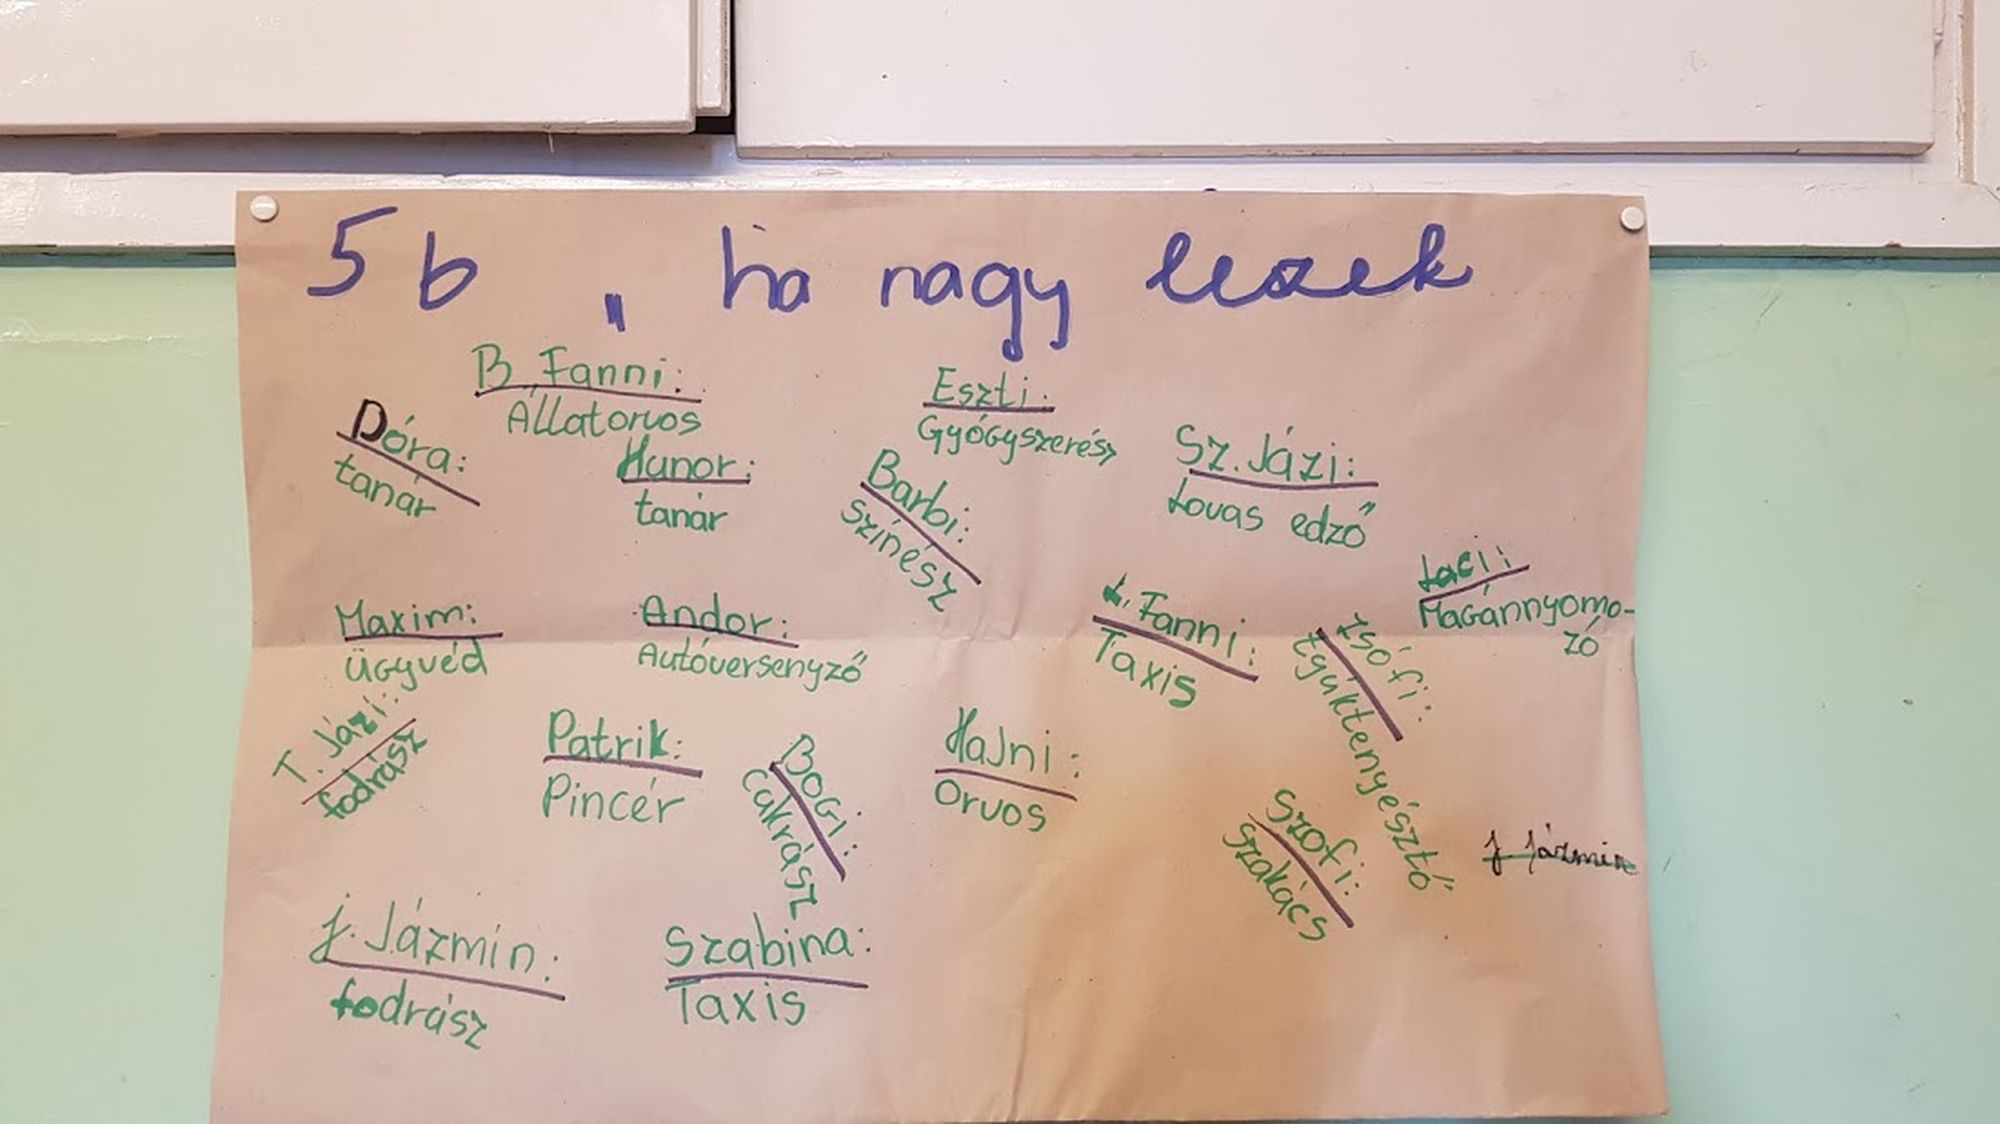 5b „ ha nagy leszek
B. Fanni:
Állatorvos
Eszti:
Gyógyszerész
Dóra:
tanár
Hunor:
tanár
Barbi:
színész
Sz. Jázi:
Lovas edző
Laci:
Magánnyomo-
zó
Maxim:
ügyvéd
Andor:
Autóversenyző
L. Fanni:
Taxis
Zsófi:
tyúktenyésztő
T. Jázi:
fodrász
Patrik:
Pincér
Bogi:
Cukrász
Hajni:
Orvos
Szofi:
szakács
J Jázmin
J. Jázmin:
fodrász
Szabina:
Taxis